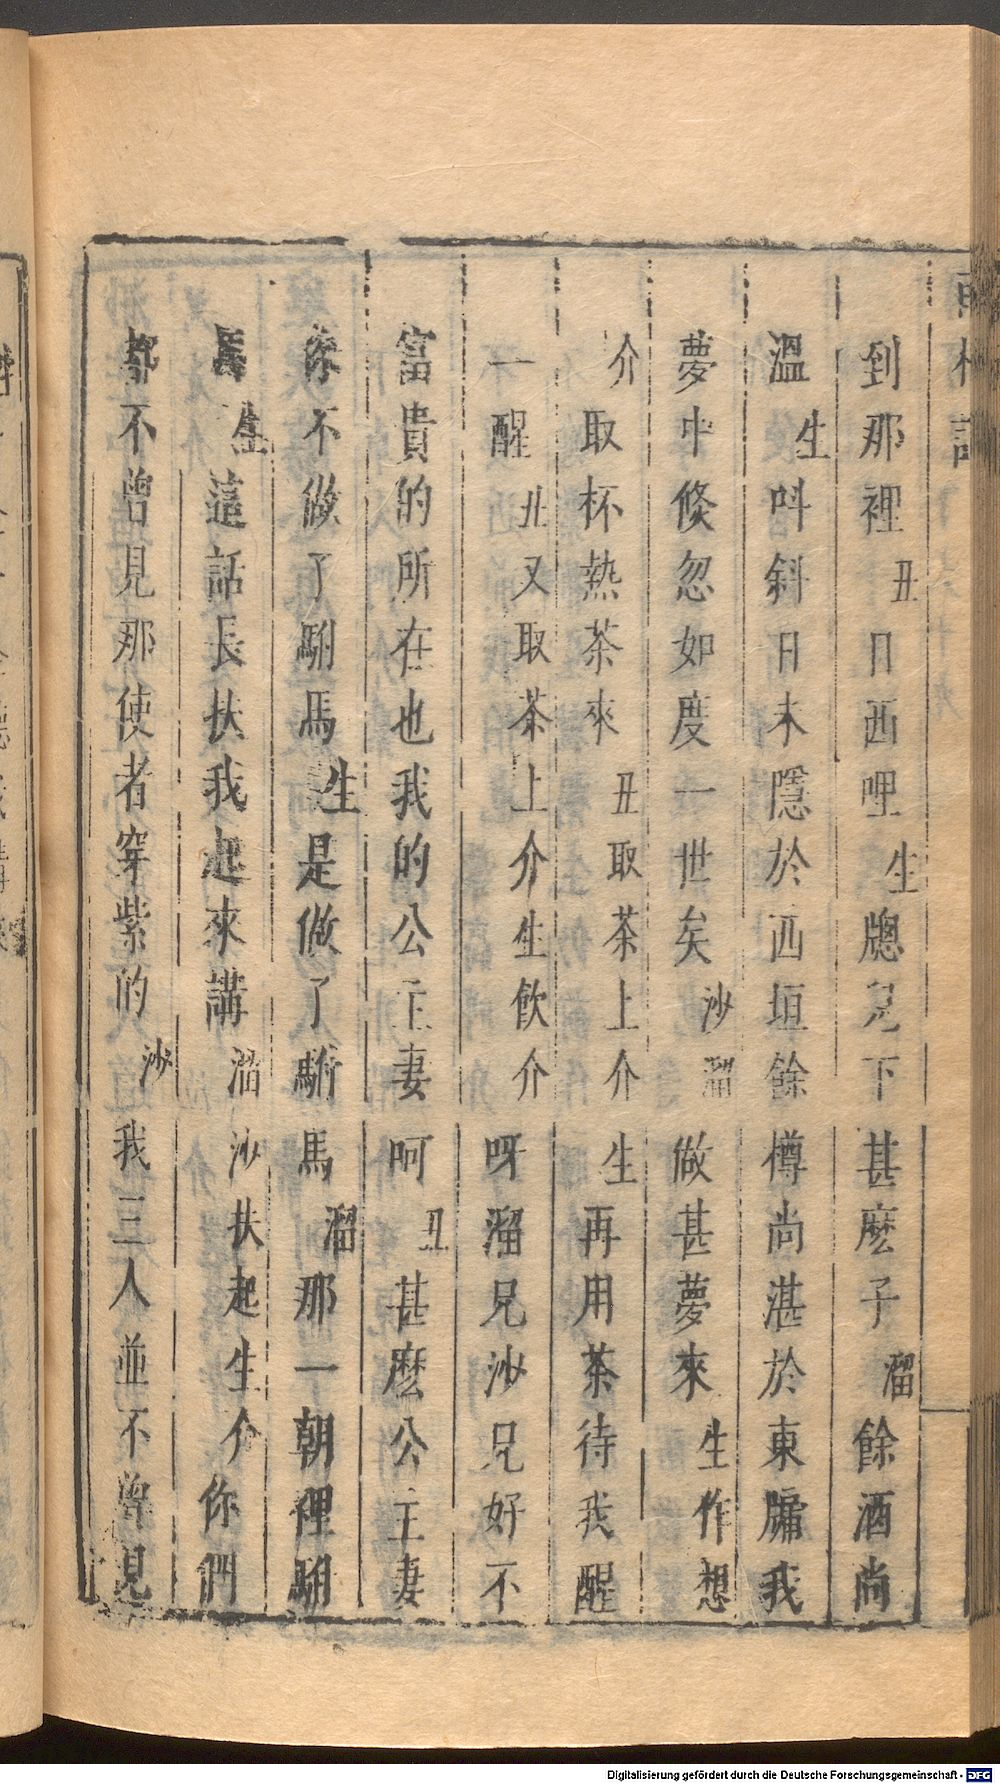 到那裡丑日西哩生牕兒下甚麽子溜餘酒尚
溫生呌斜日未隱於西垣餘樽尚湛於東牖我
夢中倏忽如度一世矣沙溜做甚夢來生作想
介取杯熱茶來丑取茶上介生再用茶待我醒
一醒丑又取茶上介生飲介呀溜兄沙兄好不
富貴的所在也我的公主妻呵丑甚麽公主妻
你不做了駙馬生是做了駙馬溜那一朝裡駙
馬生這話長扶我起來講溜沙扶起生介你們
都不曾見那使者穿紫的沙我三人並不曾見
Digitalisierung gefördert durch die Deutsche Forschungsgemeinschaft - DFG